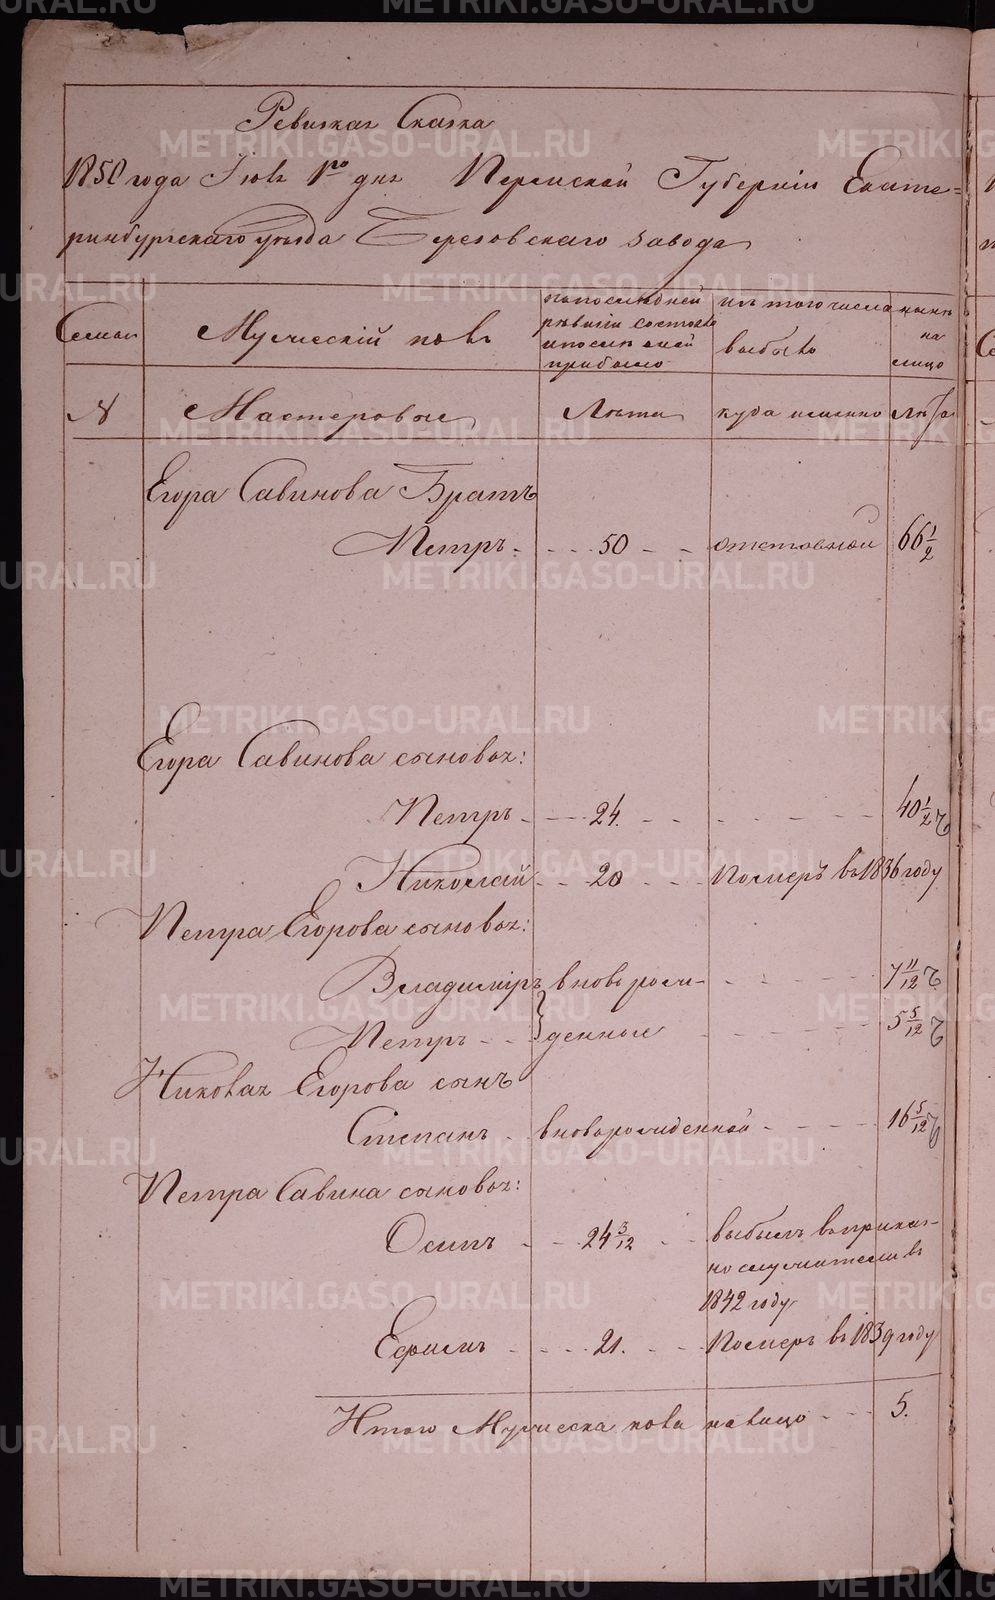 Ревизкая Сказка
1850 года Июля 1го дня Пермской Губернии Екате=
ринбургскаго уезда Березовскаго завода
Семьи
Мужеский полъ
попоследней ревизии состояло ипосле оней прибыло
изъ того числа выбыло
ныне на лицо
№ Мастеровые Лета куда именно Лета
Егора Савинова Братъ
Петръ 50 отставной 66 1/2
Егора Савинова сыновья:
Петръ 24. 40 1/2
Николай 20 Померъ въ 1836 году
Петра Егорова сыновья:
Владимiръ вновь рож- 7 11/12
Петръ денные 5 5/12
Николая Егорова сынъ
Степанъ вноворожденной 16 5/12
Петра Савина сыновья:
Осипъ 24 3/12 выбылъ вприказ-
но служители въ
1842 году
Ефимъ 21. Померъ въ 1839 году
Итого Мужеска пола налицо 5.
METRIKI.GASO-URAL.RU